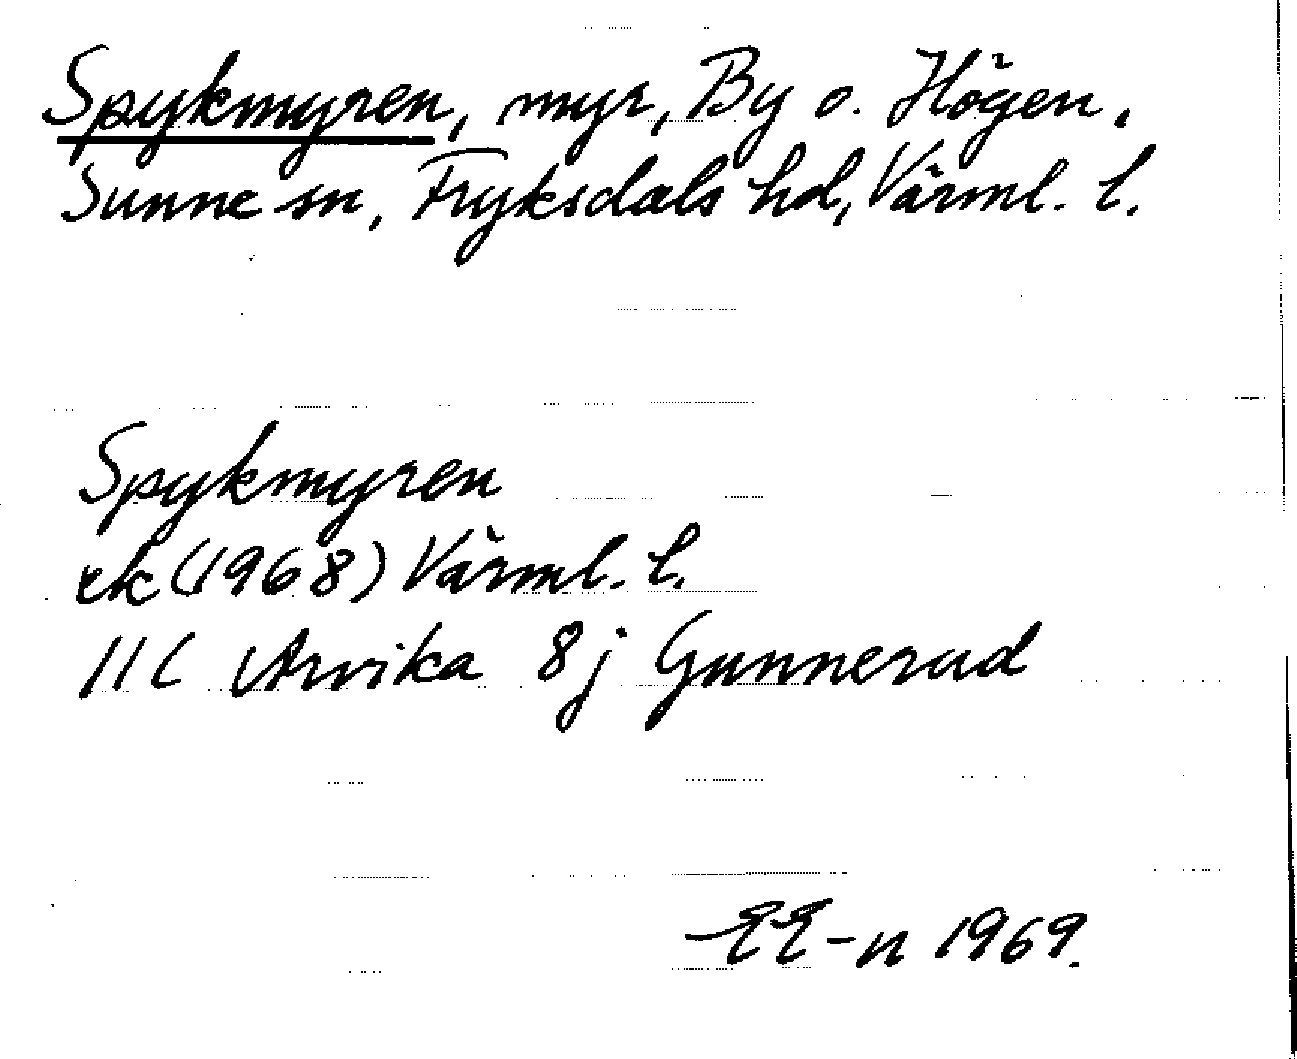 Spykmyren, myr, By o. Högen,
Sunne sn, Fryksdals hd, Värml. l.
Spykmyren
ek (1968) Värml. l.
11C Arvika 8j Gunnerud
EE-n 1969.